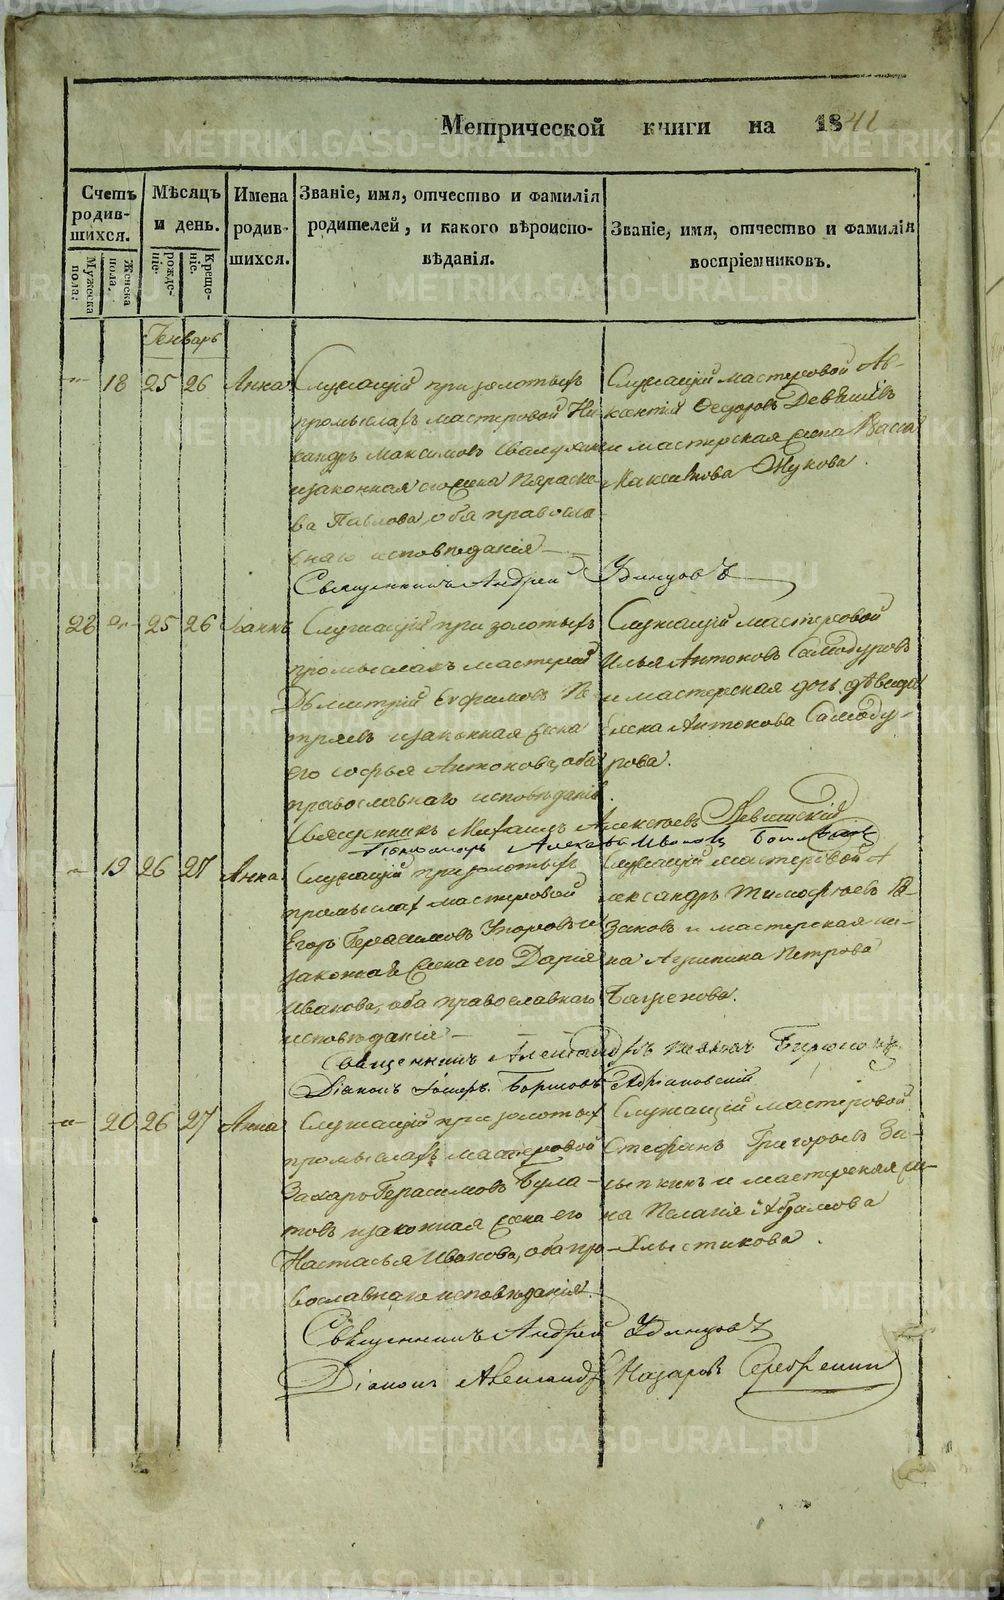 Метрической книги на 1841
Счетъ родив-шихся.
Мужеска пола.
Женска пола.
Мѣсяцъ и день.
рожде-ніе
Креще-ніе.
Имена родив-шихся.
Званіе, имя, отчество и фамилія
родителей, и какого вѣроиспо-
вѣданія.
Званіе, имя, отчество и фамилія
воспріемниковъ.
Генварь
18 25 26 Анна
Служащій при золотыхъ
промыслахъ мастеровой Ни
кандръ Максимовъ
и законная его жена Параске
ва Павлова, оба правосла
внаго исповѣданія
Служащій мастеровой Ав-
ксентій Ѳедоровъ Девяшинъ
и мастерская жена Васса
Максимова Жукова.
Священникъ Андрей Удинцовъ
22 25 26 Іоаннъ
Служащій при золотыхъ
промыслахъ мастеровой
Дѣмитрій Ефимовъ Пе
тряевъ и законная жена
его Софья Антонова, оба
православнаго исповѣданія.
Служащій мастеровой
Илья Антоновъ Самодуровъ
и мастерская дочь дѣвица
Елена Антонова Самоду-
рова.
Священникъ Михаилъ Алексѣевъ Левитскій
Пономарь Александръ Ивановъ
19 26 27 Анна
Служащій при золотыхъ
промыслахъ мастеровой
Егоръ Герасимовъ
законная жена его Дарія
Иванова, оба православнаго
исповѣданія
Служащій мастеровой А
лександръ Тимофѣевъ Ка-
заковъ и мастерская же-
на Агрипина Петрова
Багренова.
Священникъ Александръ Бирюковъ
Діаконъ Адріановскій
20 26 27 Анна
Служащій при золотых
промыслахъ мастеровой
Захаръ Герасимовъ Була-
товъ и законная жена его
Настасья Иванова, оба пра-
вославнаго исповѣданія.
Служащій мастеровой
Стефанъ Григорьевъ За-
сыпкинъ и мастерская же-
на Пелагія Абрамова
Хлыстикова.
Священникъ Андрей Удинцовъ
Діаконъ Александръ Назаровъ Серебренниковъ
METRIKI.GASO-URAL.RU